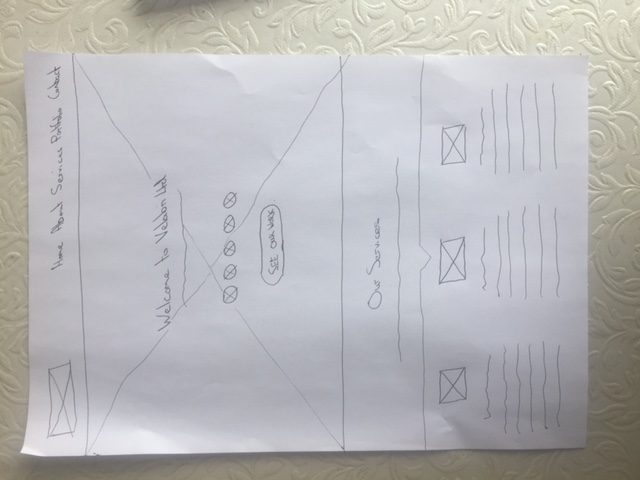 Home About Services Portfolio Contact
Welcome to Velobn Ltd
SEE OUR WORK
Our Services